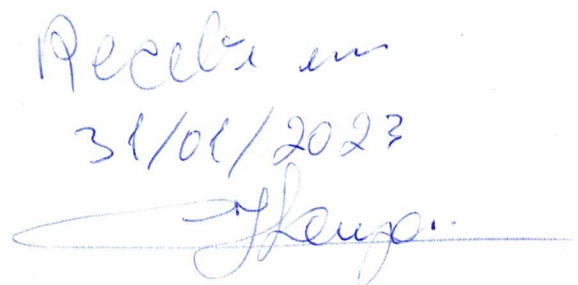 Recebi em
31/01/2023